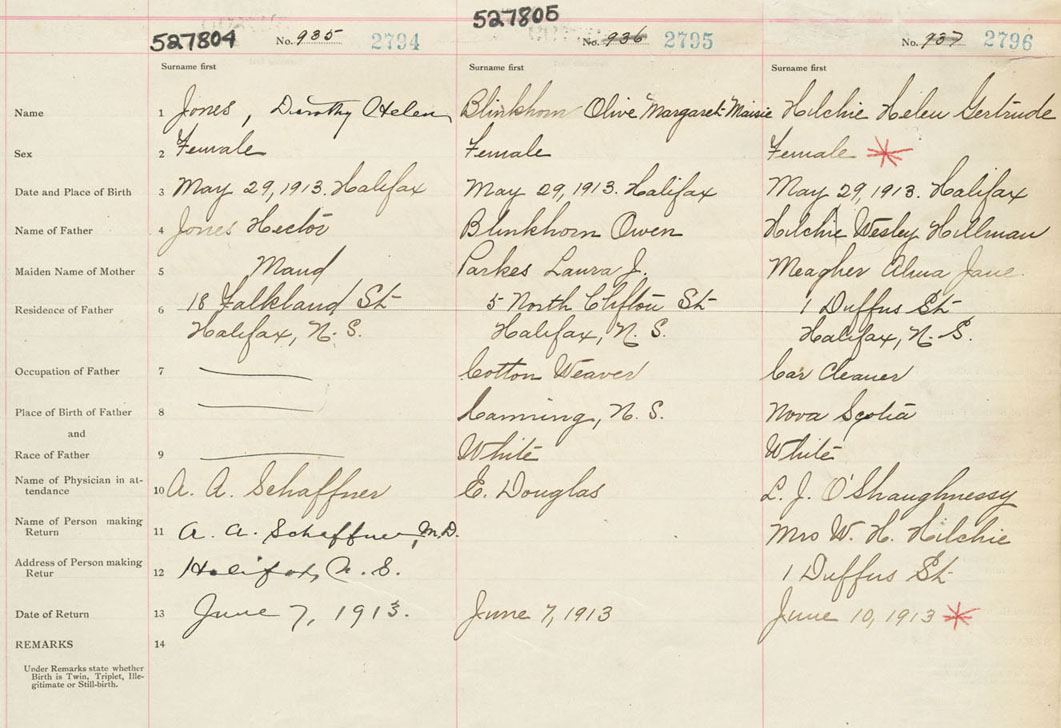 527804 No. 935 2794 527805 No. 936 2795 No. 937 2796
Surname first Surname first Surname first
Name 1 Jones, Dorothy Helen Blinkhorn Olive Margaret Maisie Hilchie Helen Gertrude
Sex 2 Female Female Female
Date and Place of Birth 3 May 29, 1913. Halifax May 29, 1913. Halifax May 29, 1913. Halifax
Name of Father 4 Jones Hector Blinkhorn Owen Hilchie Wesley Hillman
Maiden Name of Mother 5 Maud Parkes Laura J. Meagher Alma Jane
Residence of Father 6 18 Falkland St 5 North Clifton St 1 Duffus St
Halifax, N. S. Halifax, N. S. Halifax, N. S.
Occupation of Father 7 Cotton Weaver Car Cleaner
Place of Birth of Father 8 Canning, N. S. Nova Scotia
and
Race of Father 9 White White
Name of Physician in at-
tendance 10 A. A. Schaffner E. Douglas L. J. O'Shaughnessy
Name of Person making
Return 11 A. A. Schaffner, M.D. Mrs W. H. Hilchie
Address of Person making
Retur 12 Halifax, N. S. 1 Duffus St
Date of Return 13 June 7, 1913. June 7, 1913 June 10, 1913
REMARKS 14
Under Remarks state whether
Birth is Twin, Triplet, Ille-
gitimate or Still-birth.